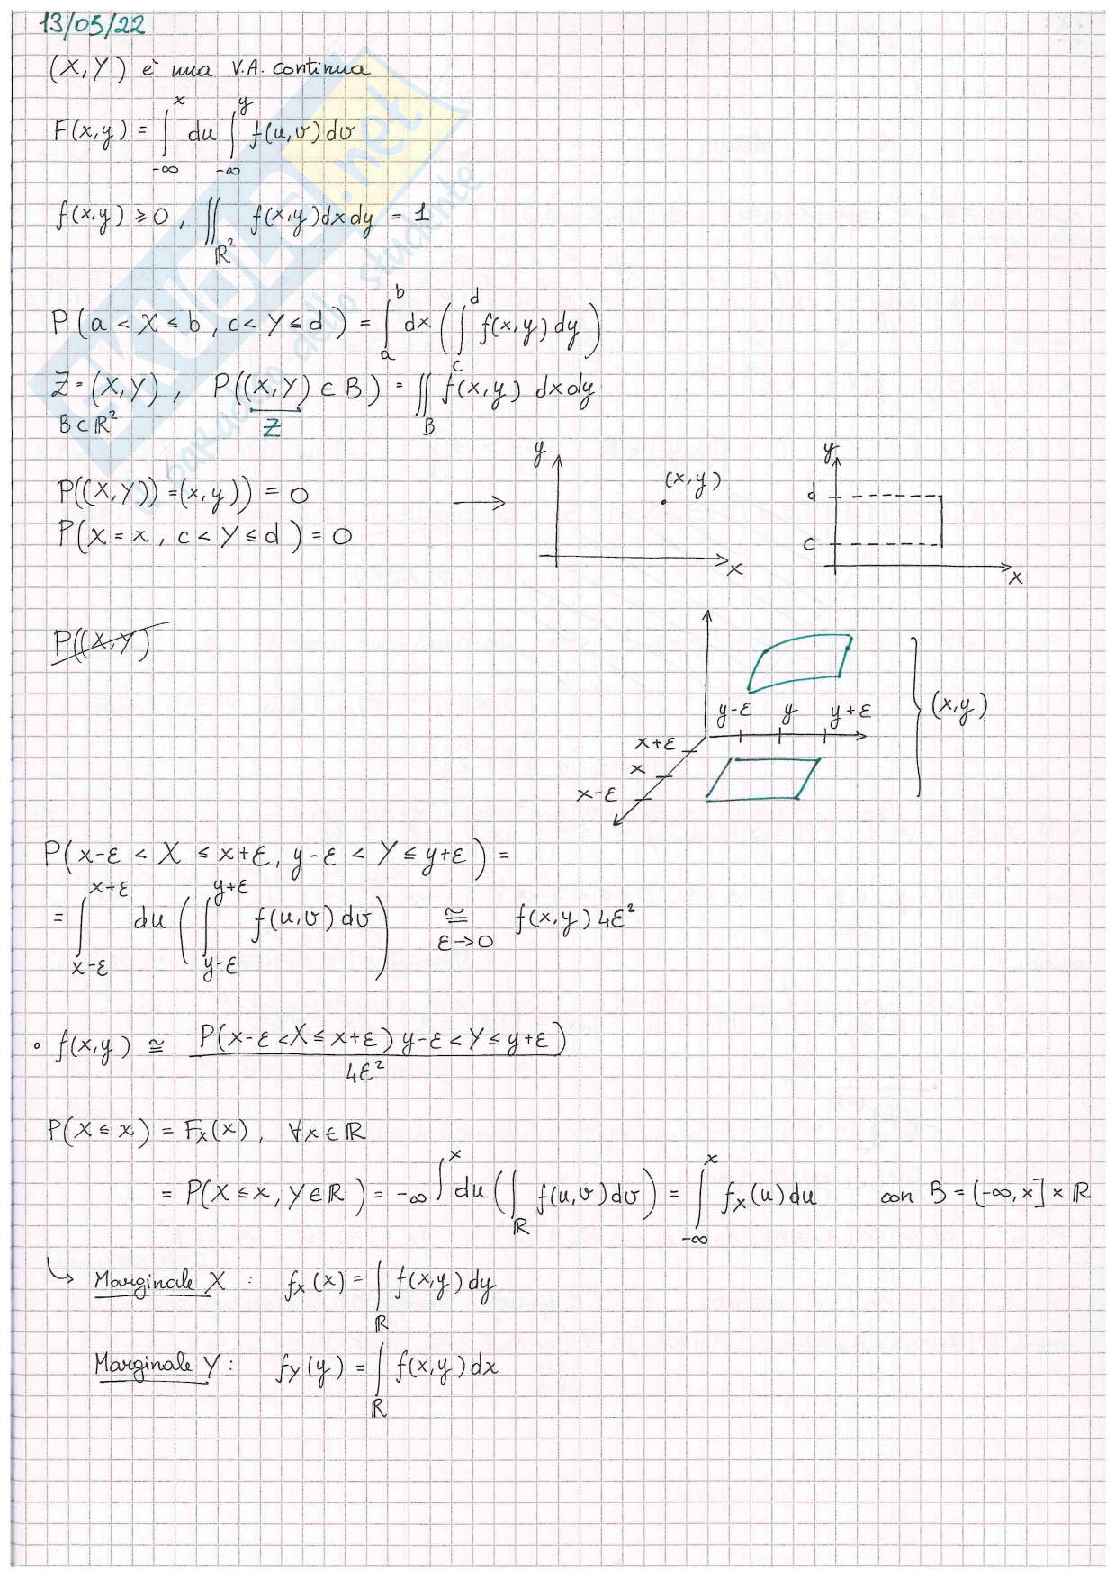 13/05/22
(X,Y) è una V.A. continua
F(x,y) = ∫_{-∞}^{x} du ∫_{-∞}^{y} f(u,v) dv
f(x,y) ≥ 0 , ∬_{ℝ²} f(x,y) dx dy = 1
P(a < X ≤ b , c < Y ≤ d) = ∫_{a}^{b} dx (∫_{c}^{d} f(x,y) dy)
Z = (X,Y) , P((X,Y) ⊂ B) = ∬_{B} f(x,y) dx dy
B ⊂ ℝ² Z
P((X,Y)) = (x,y)) = 0 →
P(X = x , c < Y ≤ d) = 0
y (x,y) x
y d c x
P((X,Y)
y-ε y y+ε
x+ε
x
x-ε
(x,y)
P(x-ε < X ≤ x+ε, y-ε < Y ≤ y+ε) =
= ∫_{x-ε}^{x+ε} du (∫_{y-ε}^{y+ε} f(u,v) dv) ≅_{ε→0} f(x,y) 4ε²
• f(x,y) ≅ P(x-ε < X ≤ x+ε) y-ε < Y ≤ y+ε) / 4ε²
P(X ≤ x) = F_X(x) , ∀x ∈ ℝ
= P(X ≤ x, Y ∈ ℝ) = ∫_{-∞}^{x} du (∫_{ℝ} f(u,v) dv) = ∫_{-∞}^{x} f_X(u) du con B = (-∞, x] × ℝ
↳ Marginale X : f_X(x) = ∫_{ℝ} f(x,y) dy
Marginale Y : f_Y(y) = ∫_{ℝ} f(x,y) dx
skuola.net
paradiso dello studente